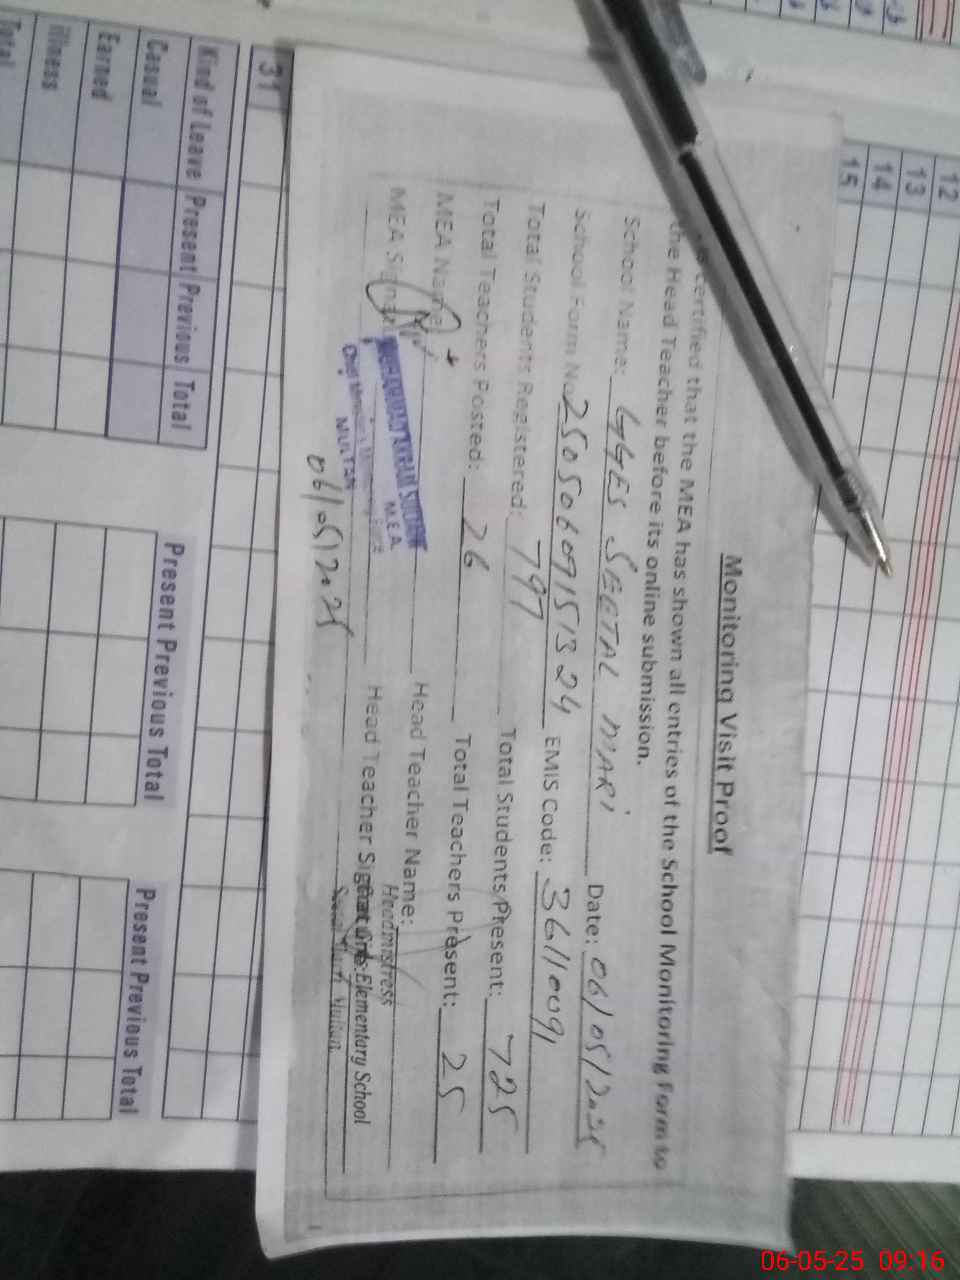 Monitoring Visit Proof
certified that the MEA has shown all entries of the School Monitoring Form to
the Head Teacher before its online submission.
School Name: GGES SEETAL MARI Date: 06/05/2025
School Form No. EMIS Code: 36110091
Total Students Registered: 797 Total Students Present: 725
Total Teachers Posted: 26 Total Teachers Present: 25
MEA Name Head Teacher Name:
MEA Sign Head Teacher Sign
MUHAMMAD AKRAM
M.E.A
MULTAN
06/05/2025
Headmistress
Elementary School
Multan
31
Kind of Leave Present Previous Total
Casual
Earned
Illness
Total
Present Previous Total
Present Previous Total
12
13
14
15
06-05-25 09:16